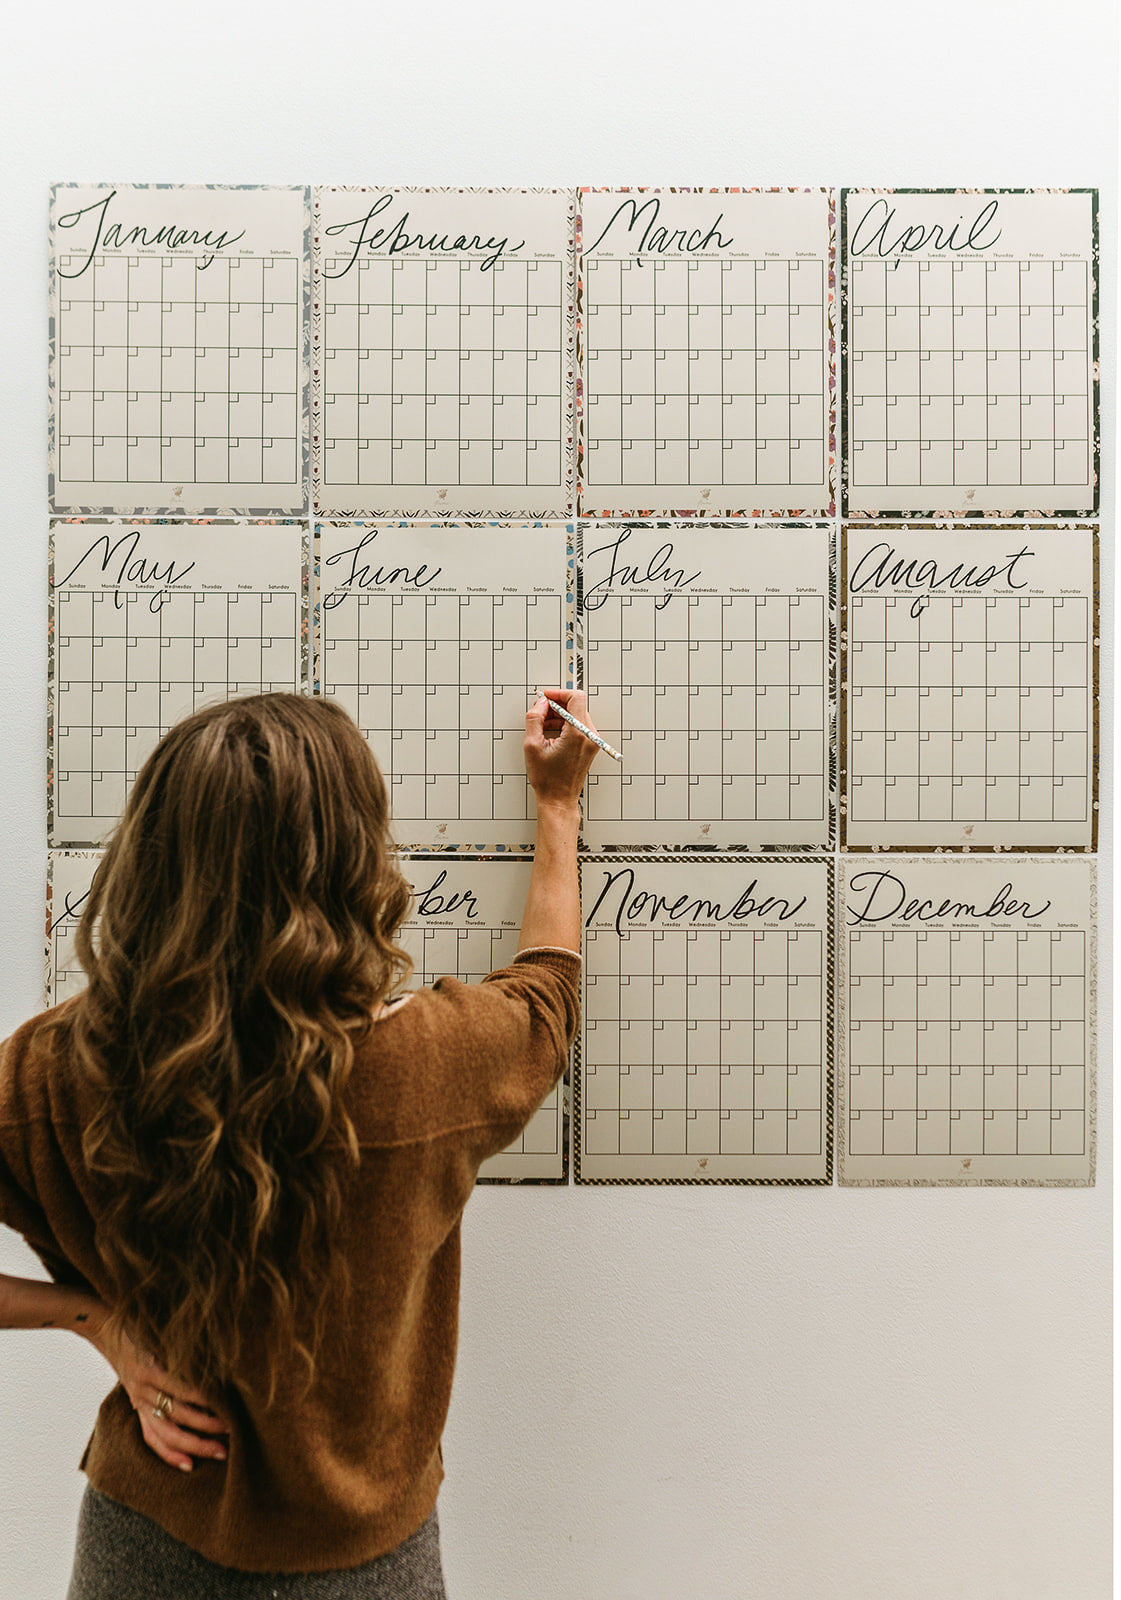 January
Sunday Monday Tuesday Wednesday Thursday Friday Saturday
February
Sunday Monday Tuesday Wednesday Thursday Friday Saturday
March
Sunday Monday Tuesday Wednesday Thursday Friday Saturday
April
Sunday Monday Tuesday Wednesday Thursday Friday Saturday
May
Sunday Monday Tuesday Wednesday Thursday Friday Saturday
June
Sunday Monday Tuesday Wednesday Thursday Friday Saturday
July
Sunday Monday Tuesday Wednesday Thursday Friday Saturday
August
Sunday Monday Tuesday Wednesday Thursday Friday Saturday
S
Sunday
ber
Tuesday Wednesday Thursday Friday
November
Sunday Monday Tuesday Wednesday Thursday Friday Saturday
December
Sunday Monday Tuesday Wednesday Thursday Friday Saturday